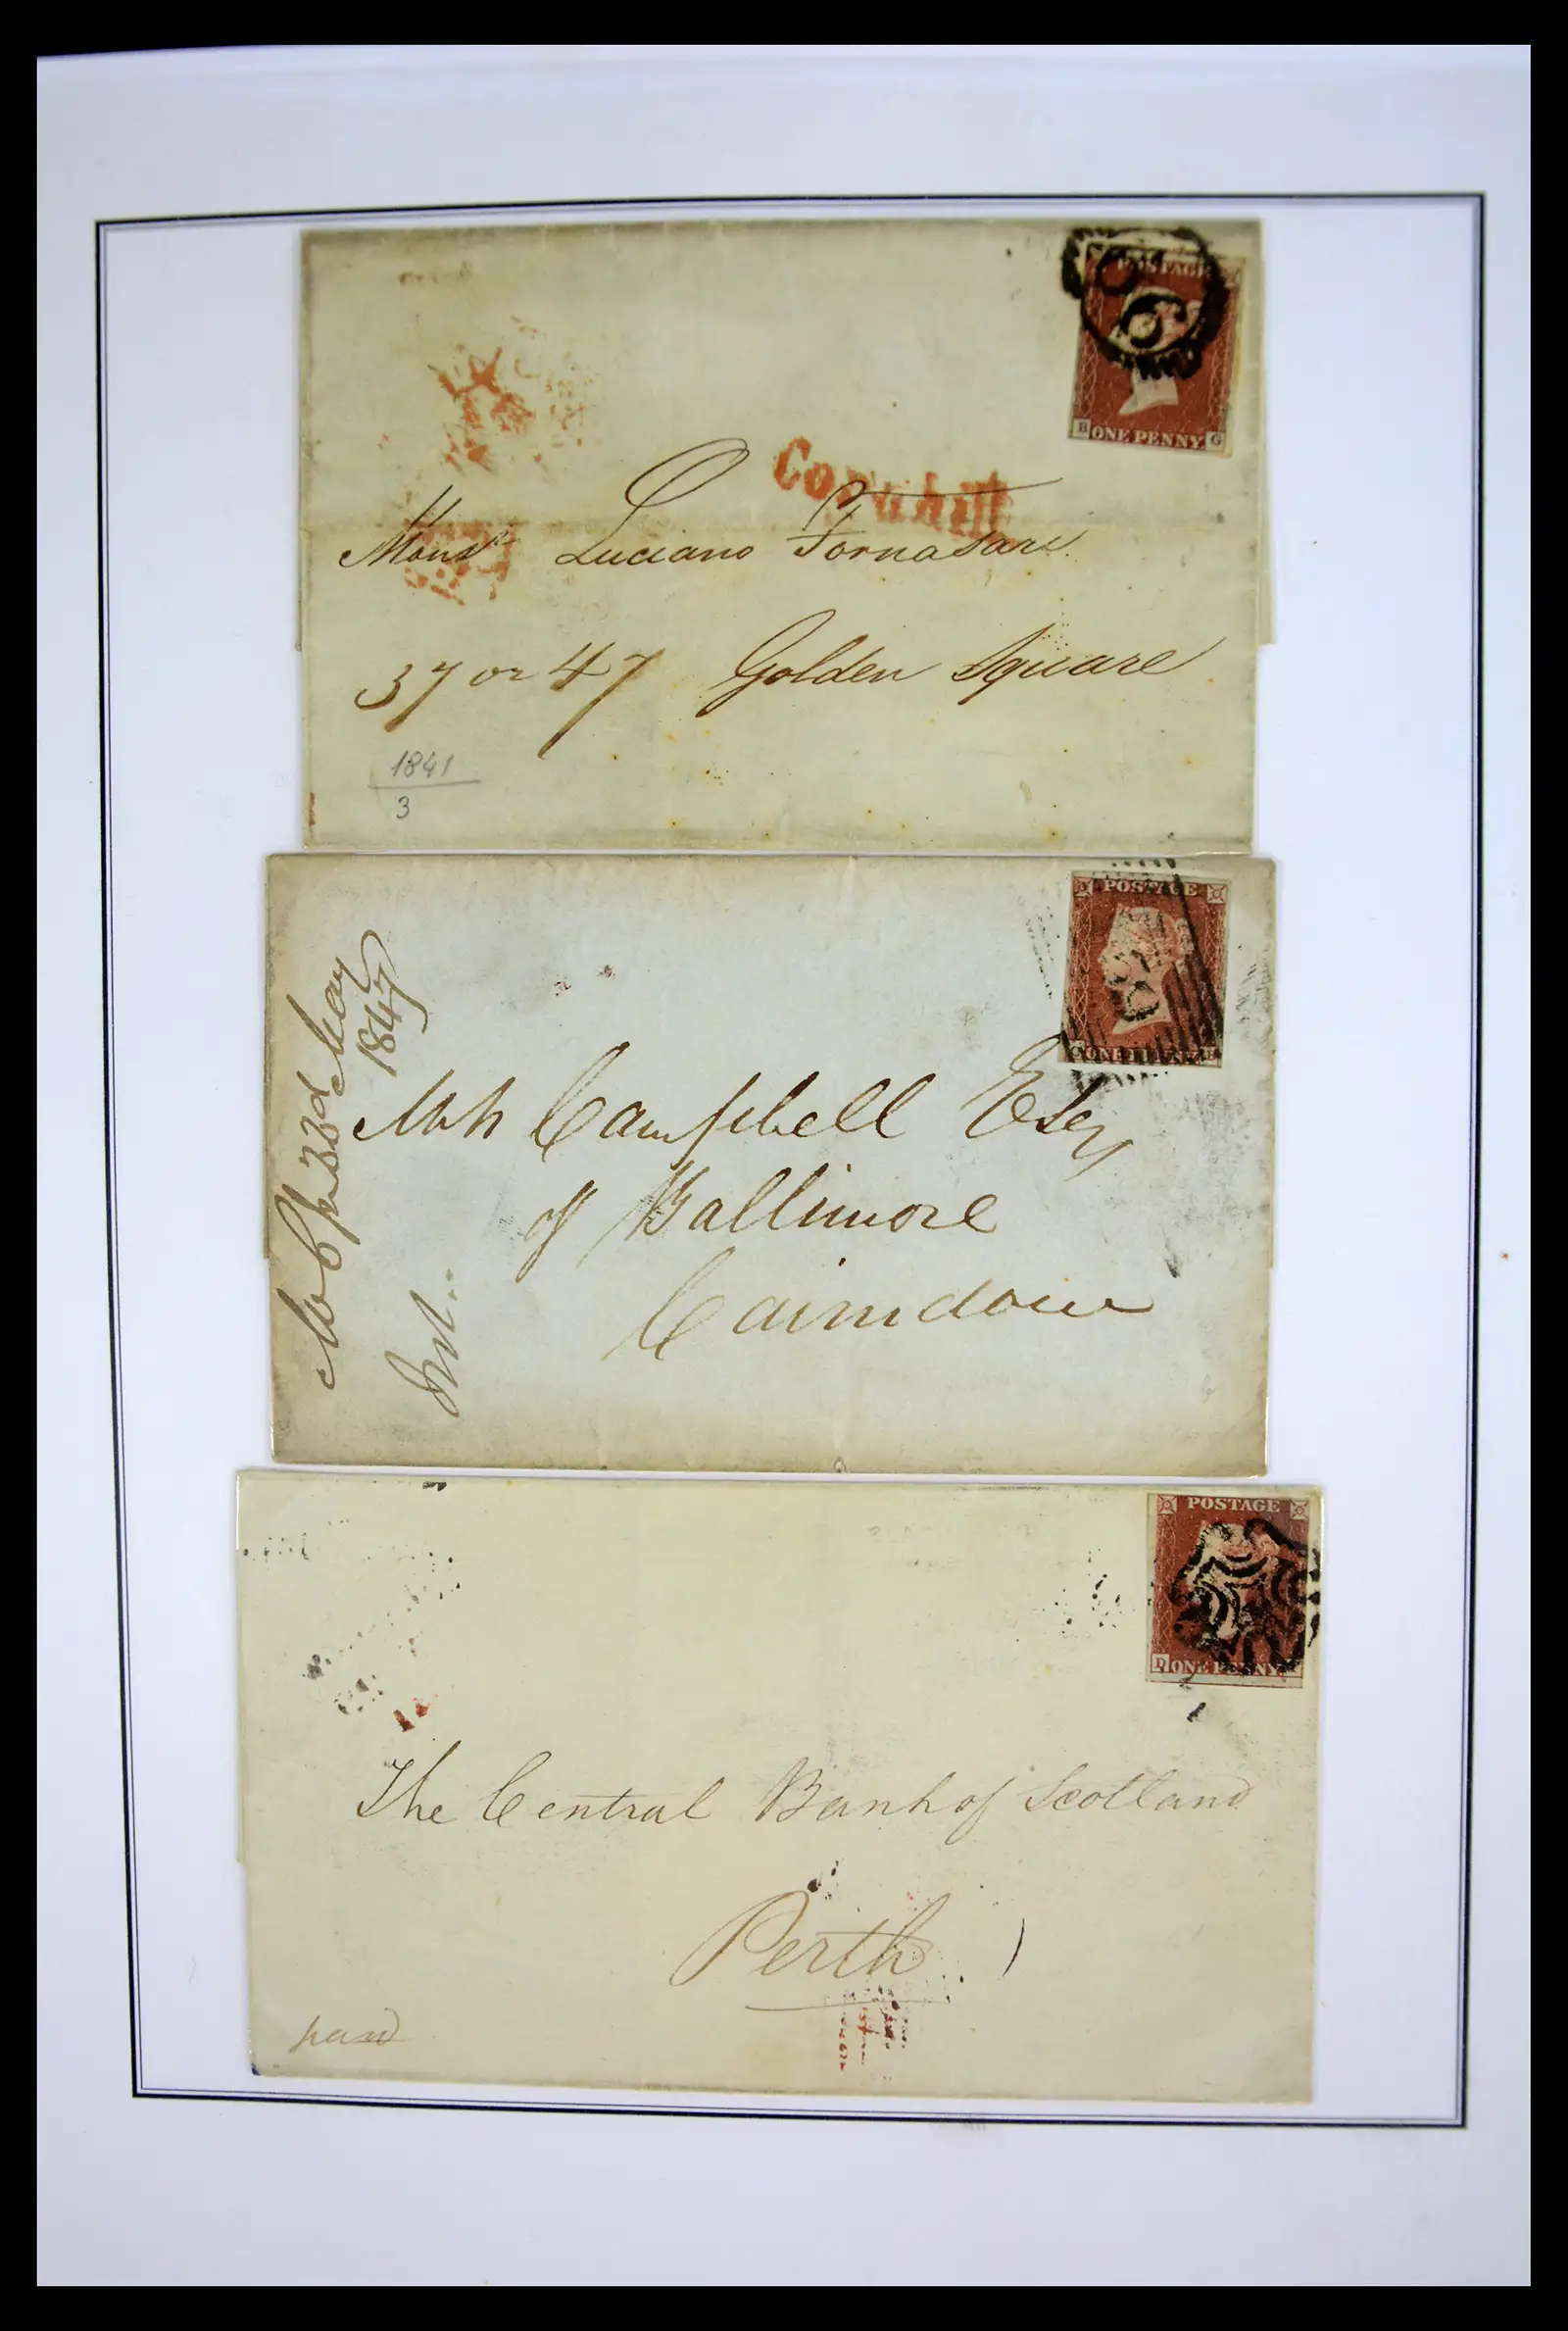 POSTAGE
6
B ONE PENNY G
Cornhill
Monsr Luciano Fornasari
37 or 47 Golden Square
1841
3
POSTAGE
ONE PENNY
23d May
1847
Campbell Esq
of Ballimore
Cairndow
POSTAGE
D ONE PENNY
The Central Bank of Scotland
Perth
paid